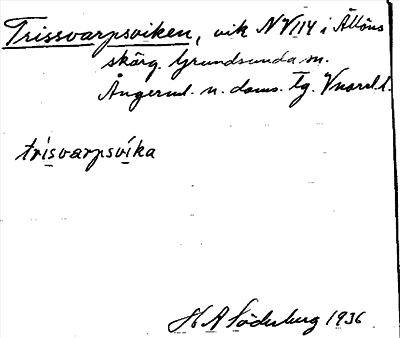 Trissvarpsviken, vik N VIIY i Ällöns
skärg. Grundsunda sn.
Ångerml. n. doms. tg. Vnorrl. l.
trisvarpsvika
H A Söderberg 1936